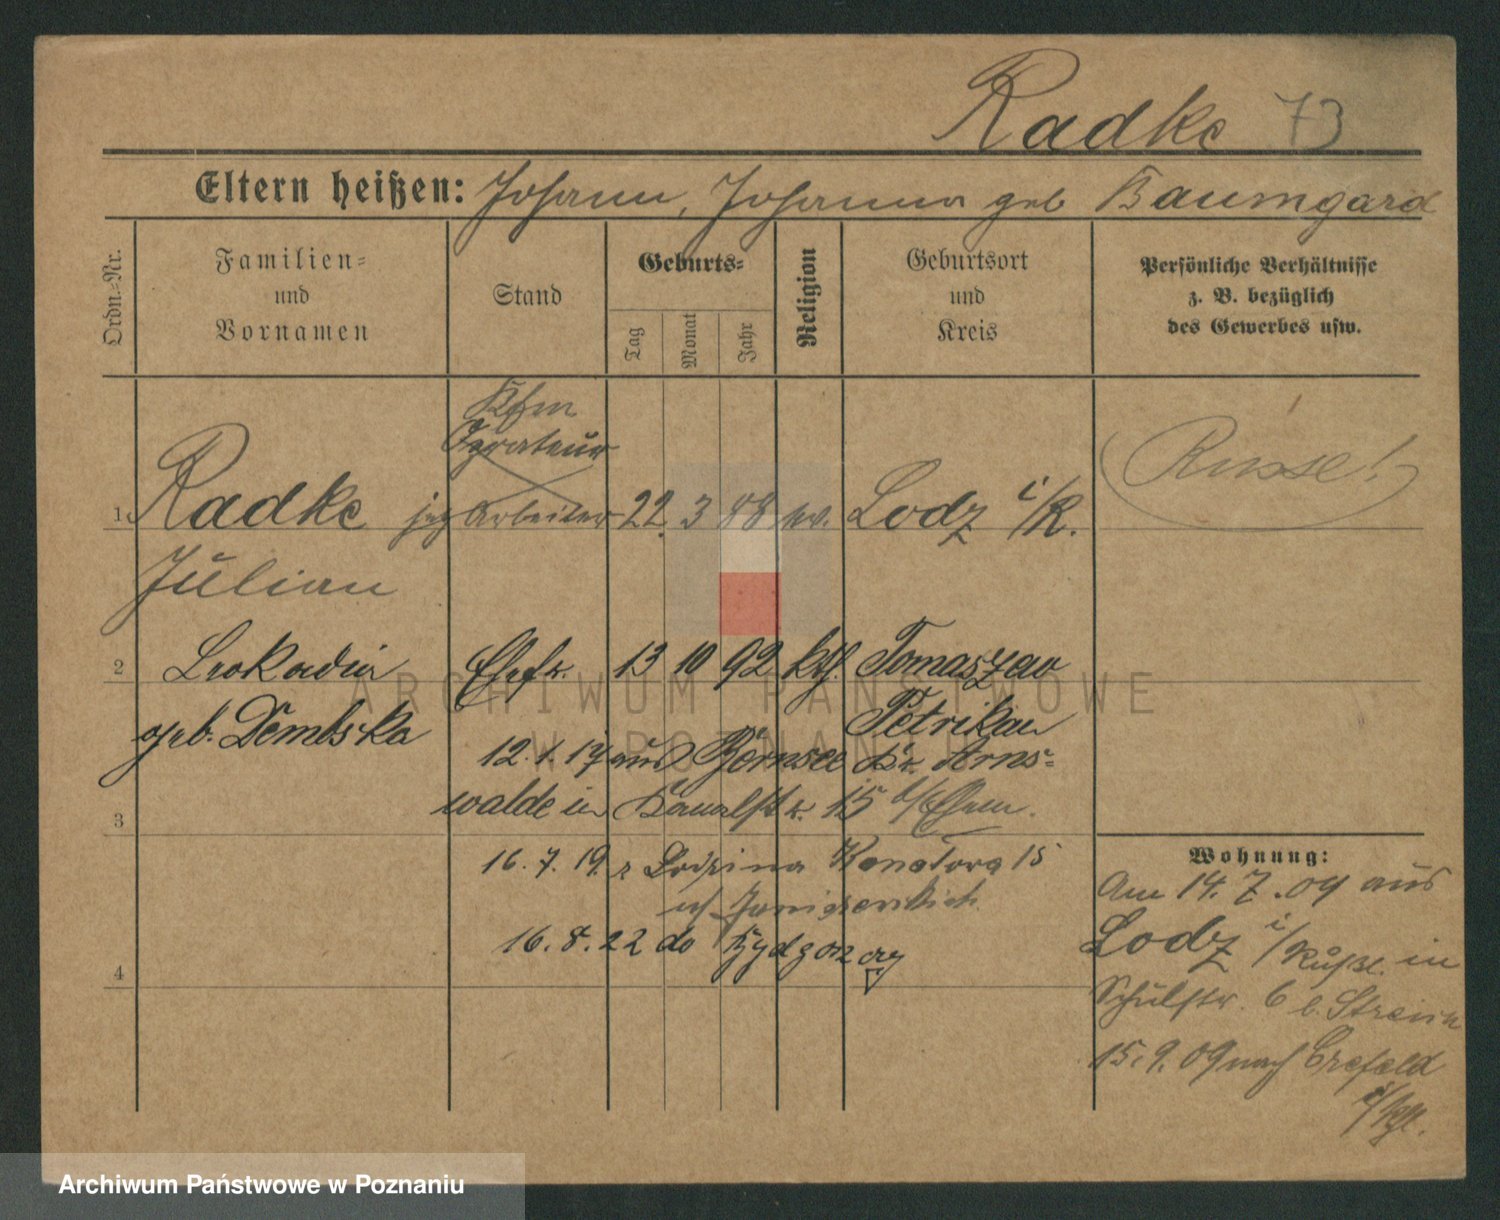 Radke 73
Eltern heißen: Johann, Johanna geb Baumgard
Ordn.-Nr.
Familien-
und
Vornamen
Stand
Geburts-
Tag
Monat
Jahr
Religion
Geburtsort
und
Kreis
Persönliche Verhältnisse
z. B. bezüglich
des Gewerbes usw.
Kfm
1. Radke jez Arbeiter 22. 3 88 ev. Lodz i/R. Russe!
Julian
2 Leokadia Ehefr. 13 10 92 kth. Tomaszew
geb. Dembska Petrikau
12. 1. 17 aus Bernsee Kr. Arns=
walde in Kanalstr. 15 b/Ehem.
3
16. 7. 19. z Kanałowa 15
16. 8. 22 do Bydgoszczy
4
Wohnung:
Am 14. 7. 09 aus
Lodz i/Rußl. in
Schulstr. 6 b.
15. 9. 09 nach Crefeld
ARCHIWUM PAŃSTWOWE
W POZNANIU
Archiwum Państwowe w Poznaniu